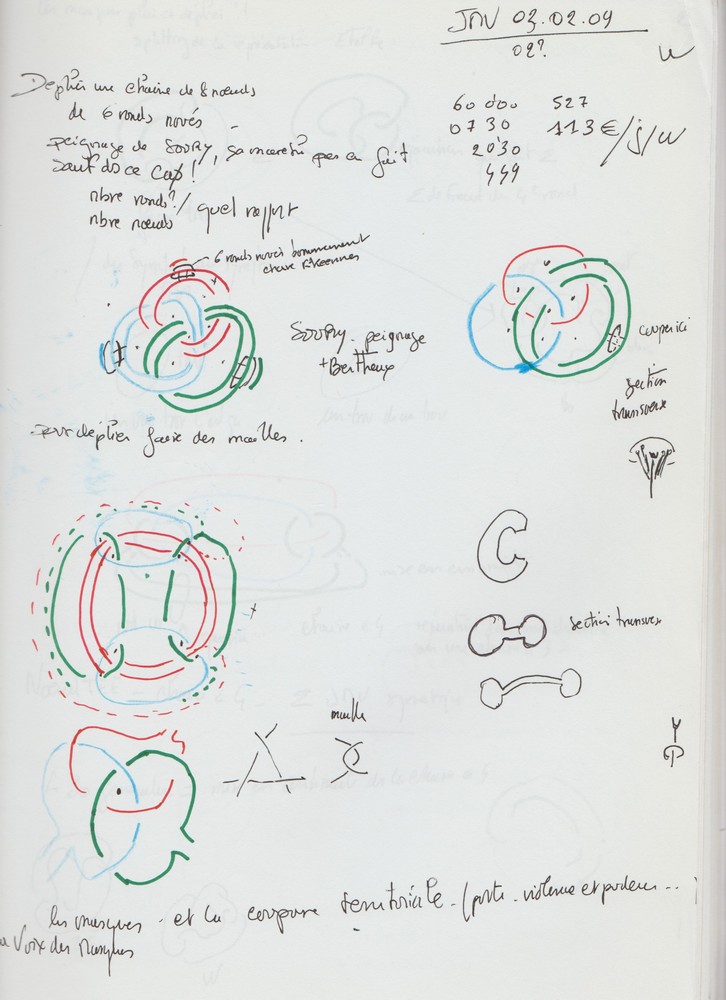 JAV 03.02.09
02?
W
Deplier une chaine de 8 nœuds
de 6 ronds noués
peignage de SOURY, sa
pas en fait
sauf do ce Cap!
nbre ronds?/ quel rapport
nbre nœuds
60 000 527
0730 113€/j/W
2030
449
6 ronds noués
SOURY. peignage
+Bertheux
couper ici
section
transverse
pour deplier faire des mailles.
section transverse
maille
les masques - et la coupure territoriale - (porte - violence et
Voix des Masques